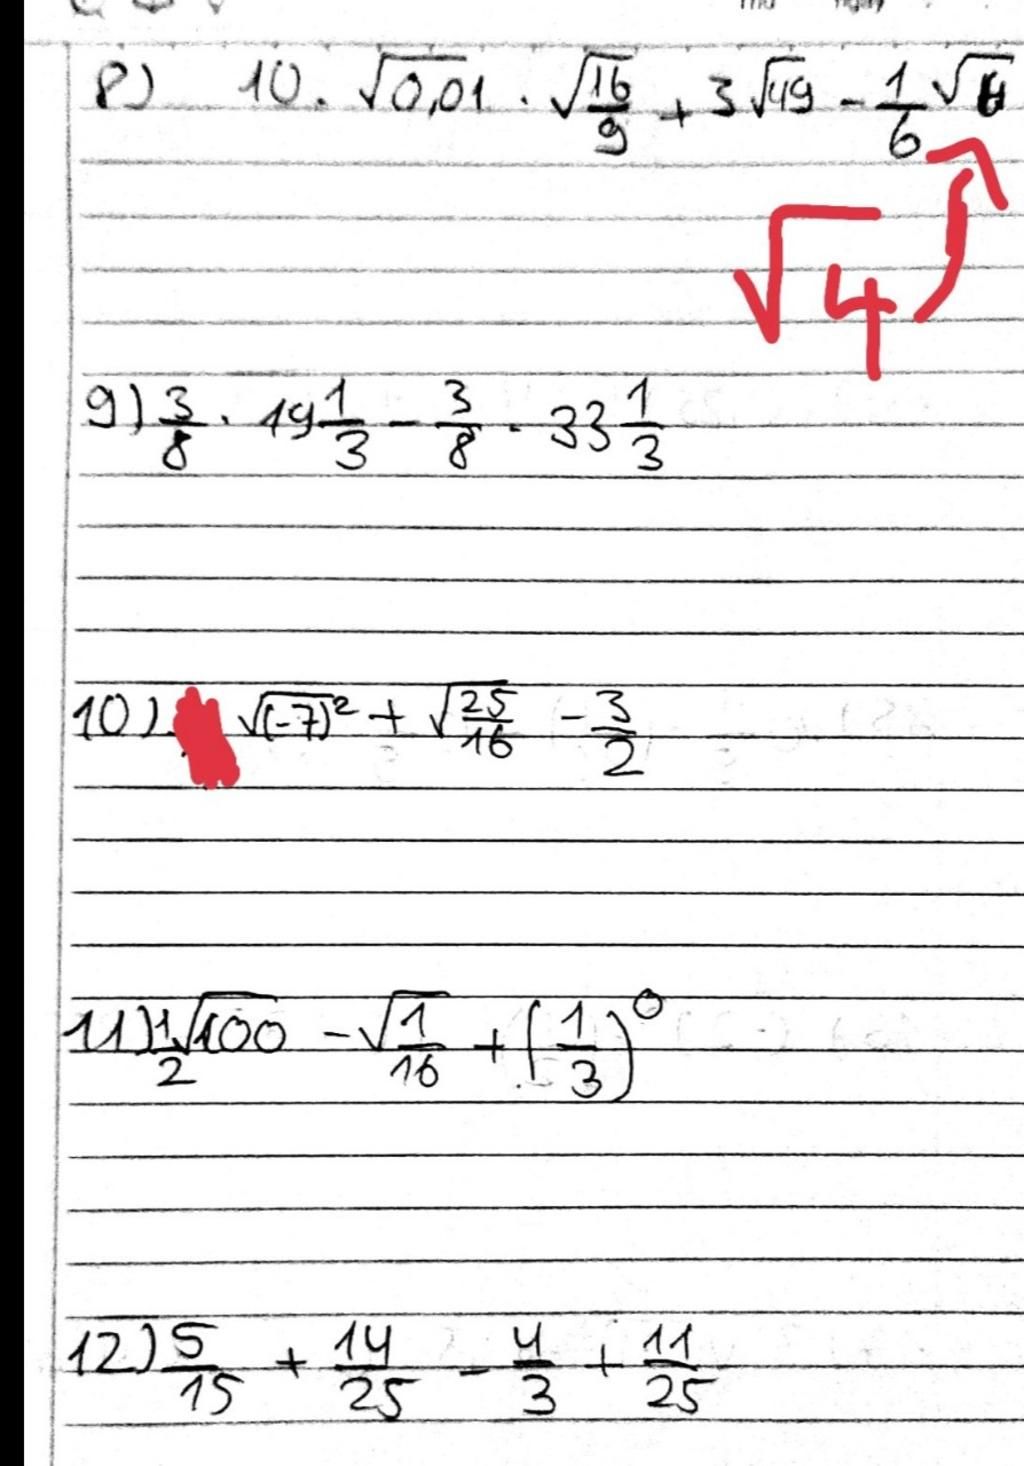 8) 10 . √0,01 . √16/9 + 3√49 - 1/6 √4
√4
9) 3/8 . 19 1/3 - 3/8 . 33 1/3
10) √(-7)² + √25/16 - 3/2
11) 1/2 √100 - √1/16 + (1/3)⁰
12) 5/15 + 14/25 - 4/3 + 11/25